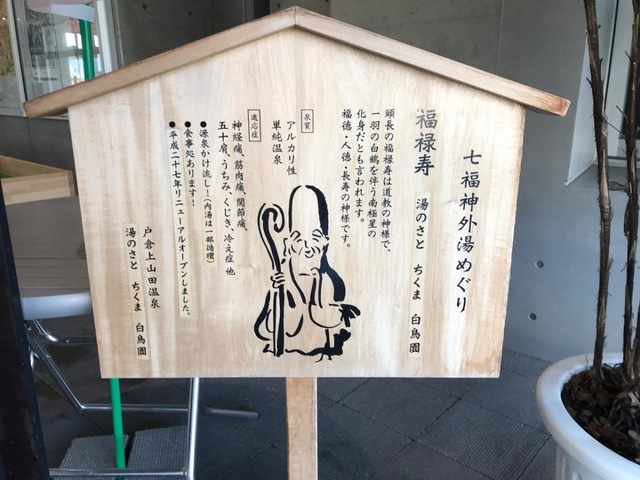 七福神外湯めぐり
福禄寿　湯のさと　ちくま　白鳥園
頭長の福禄寿は道教の神様で、
一羽の白鶴を伴う南極星の
化身だとも言われます。
福徳・人徳・長寿の神様です。
泉質
アルカリ性
単純温泉
適応症
神経痛、筋肉痛、関節痛、
五十肩、うちみ、くじき、冷え症 他
●源泉かけ流し！（内湯は一部循環）
●食事処あります！
●平成二十七年リニューアルオープンしました。
戸倉上山田温泉
湯のさと　ちくま　白鳥園